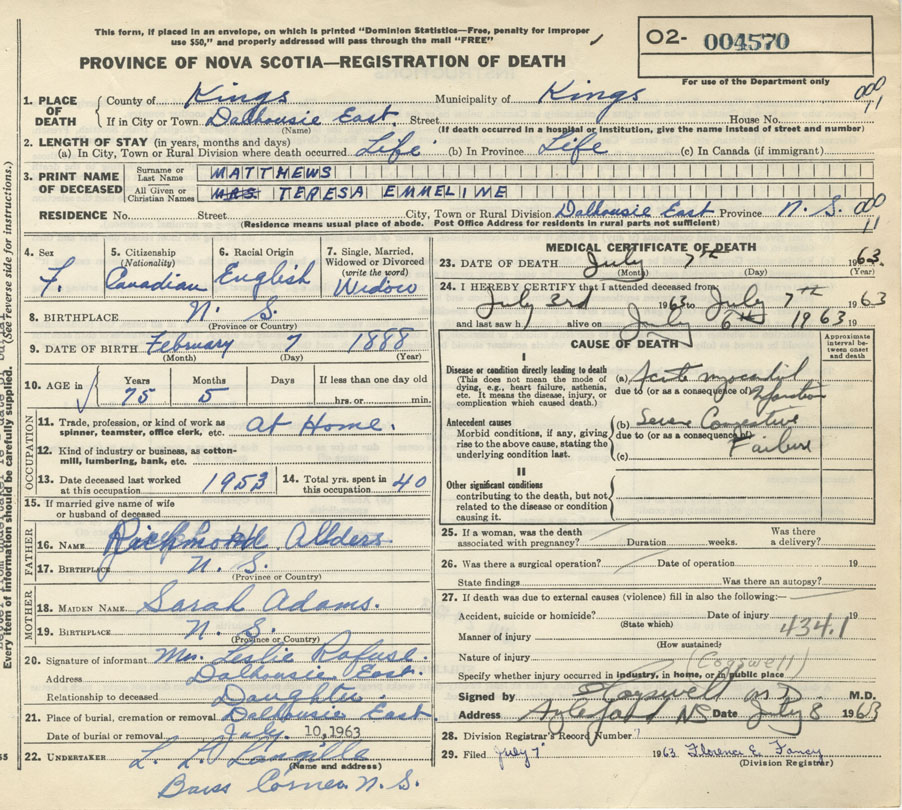 This form, if placed in an envelope, on which is printed "Dominion Statistics—Free, penalty for improper
use $50," and properly addressed will pass through the mail "FREE"
O2- 004570
For use of the Department only
PROVINCE OF NOVA SCOTIA—REGISTRATION OF DEATH
1. PLACE OF DEATH County of Kings Municipality of Kings 000
If in City or Town Dalhousie East. Street House No. 11
(Name) (If death occurred in a hospital or institution, give the name instead of street and number)
2. LENGTH OF STAY (in years, months and days)
(a) In City, Town or Rural Division where death occurred Life (b) In Province Life (c) In Canada (if immigrant)
3. PRINT NAME OF DECEASED Surname or Last Name MATTHEWS
All Given or Christian Names MRS TERESA EMMELINE
RESIDENCE No. Street City, Town or Rural Division Dalhousie East Province N. S. 000
(Residence means usual place of abode. Post Office Address for residents in rural parts not sufficient) 11
4. Sex F.
5. Citizenship (Nationality) Canadian
6. Racial Origin English
7. Single, Married, Widowed or Divorced (write the word) Widow
8. BIRTHPLACE N. S.
(Province or Country)
9. DATE OF BIRTH February 7 1888
(Month) (Day) (Year)
10. AGE in Years 75 Months 5 Days If less than one day old hrs. or min.
OCCUPATION
11. Trade, profession, or kind of work as spinner, teamster, office clerk, etc. At Home.
12. Kind of industry or business, as cotton-mill, lumbering, bank, etc.
13. Date deceased last worked at this occupation 1953 14. Total yrs. spent in this occupation 40
15. If married give name of wife or husband of deceased
FATHER
16. NAME Richmond Allders
17. BIRTHPLACE N. S.
(Province or Country)
MOTHER
18. MAIDEN NAME Sarah Adams.
19. BIRTHPLACE N. S.
(Province or Country)
20. Signature of informant Mrs. Leslie Rafuse.
Address Dalhousie East.
Relationship to deceased Daughter.
21. Place of burial, cremation or removal Dalhousie East
Date of burial or removal July 10, 1963
22. UNDERTAKER L. L. Langille
(Name and address)
Barss Corner N. S.
MEDICAL CERTIFICATE OF DEATH
23. DATE OF DEATH July 7th 1963.
(Month) (Day) (Year)
24. I HEREBY CERTIFY that I attended deceased from
July 3rd 1963 to July 7th 1963
and last saw h alive on July 6th 1963 19
CAUSE OF DEATH
Approximate interval between onset and death
I
Disease or condition directly leading to death
(This does not mean the mode of dying, e.g., heart failure, asthenia, etc. It means the disease, injury, or complication which caused death.)
(a) Acute myocardial
due to (or as a consequence of) Infarction
Antecedent causes
Morbid conditions, if any, giving rise to the above cause, stating the underlying condition last.
(b) Severe Congestive
due to (or as a consequence of) Failure
(c)
II
Other significant conditions
contributing to the death, but not related to the disease or condition causing it.
25. If a woman, was the death associated with pregnancy? Duration weeks. Was there a delivery?
26. Was there a surgical operation? Date of operation 19
State findings Was there an autopsy?
27. If death was due to external causes (violence) fill in also the following:
Accident, suicide or homicide? Date of injury 19
(State which)
Manner of injury 434.1
(How sustained)
Nature of injury (Cogswell)
Specify whether injury occurred in industry, in home, or in public place
Signed by Cogswell M D M.D.
Address Aylesford NS Date July 8 1963
28. Division Registrar's Record Number 7
29. Filed July 7 1963 Florence E.
(Division Registrar)
Every item of information should be carefully supplied. (See reverse side for instructions.)